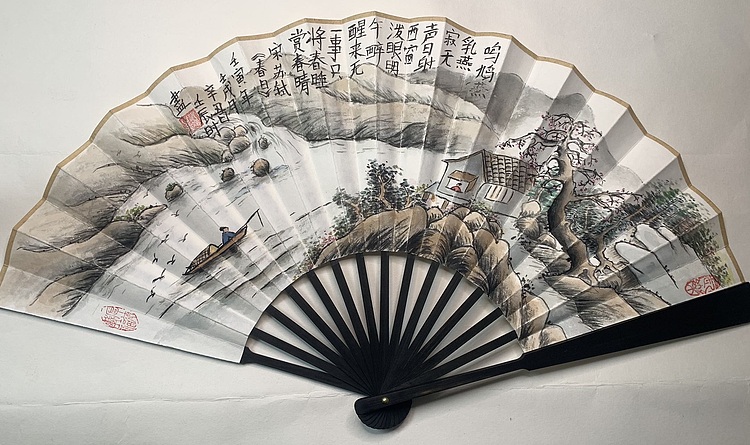 鸣鸠燕
乳燕
寂无
声日射
西窗
泼眼明
午醉
醒来无
一事只
将春睡
赏春晴
宋苏轼
《春日》
壬寅年
戌月
辛丑日
壬辰时
画